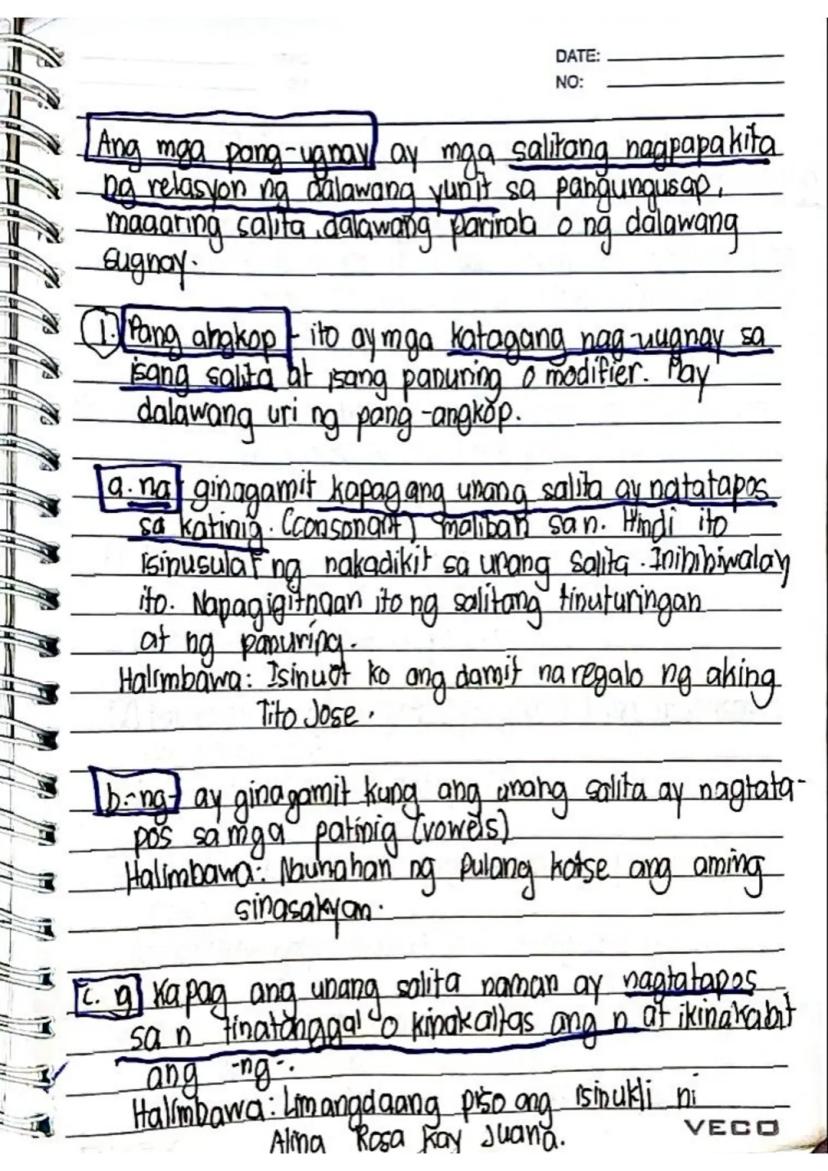 DATE:
NO:
Ang mga pang-ugnay ay mga salitang nagpapakita
ng relasyon ng dalawang yunit sa pangungusap,
maaaring salita, dalawang parirala o ng dalawang
sugnay.
1. Pang angkop - ito ay mga katagang nag-uugnay sa
isang salita at isang panuring o modifier. May
dalawang uri ng pang-angkop.
a. na ginagamit kapag ang unang salita ay natatapos
sa katinig. (consonant) maliban sa n. Hindi ito
isinusulat ng nakadikit sa unang salita. Inihihiwalay
ito. Napagigitnaan ito ng salitang tinuturingan
at ng panuring.
Halimbawa: Isinuot ko ang damit na regalo ng aking
Tito Jose.
b. -ng- ay ginagamit kung ang unang salita ay nagtata-
pos sa mga patinig (vowels)
Halimbawa: Naunahan ng pulang kotse ang aming
sinasakyan.
c. g Kapag ang unang salita naman ay nagtatapos
sa n tinatanggal o kinakaltas ang n at ikinakabit
ang -ng-.
Halimbawa: Limangdaang piso ang isinukli ni
Alina Rosa kay Juana.
VECO